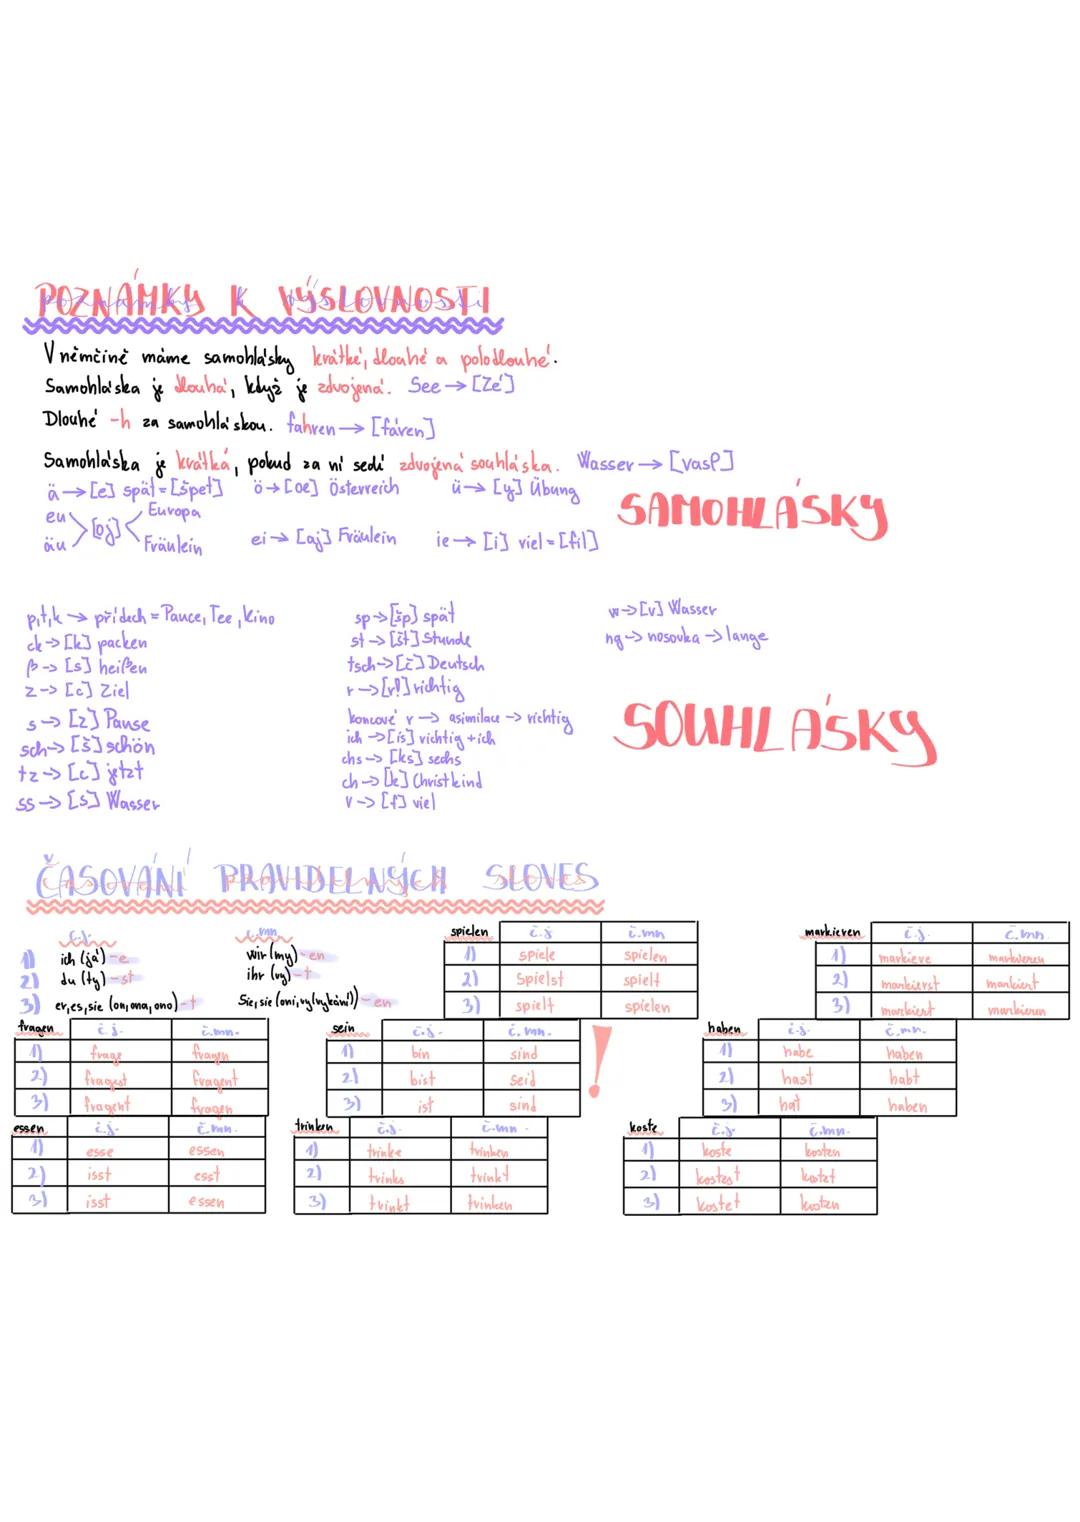 POZNÁMKY K VÝSLOVNOSTI
V němčině máme samohlásky krátké, dlouhé a polodlouhé.
Samohláska je dlouhá, když je zdvojená. See → [Zé]
Dlouhé -h za samohláskou. fahren → [fáren]
Samohláska je krátká, pokud za ní sedí zdvojená souhláska. Wasser → [vasɐ]
ä → [e] spät = [špet] ö → [oe] Österreich ü → [y] Übung
SAMOHLÁSKY
eu Europa
[oj]
äu Fräulein ei → [aj] Fräulein ie → [i] viel = [fil]
p,t,k → přídech = Pauce, Tee, Kino
ck → [k] packen
β → [s] heißen
z → [c] Ziel
s → [z] Pause
sch → [š] schön
tz → [c] jetzt
ss → [s] Wasser
sp → [šp] spät
st → [št] Stunde
tsch → [č] Deutsch
r → [r!] richtig
koncové r → asimilace → richtig
ich → [iś] richtig + ich
chs → [ks] sechs
ch → [k] Christkind
v → [f] viel
w → [v] Wasser
ng → nosovka → lange
SOUHLÁSKY
ČASOVÁNÍ PRAVIDELNÝCH SLOVES
č.j. č.mn.
1) ich (já) -e wir (my) -en
2) du (ty) -st ihr (vy) -t
3) er, es, sie (on, ona, ono) -t Sie, sie (oni, vy (vykání)) -en
spielen č.j. č.mn
1) spiele spielen
2) Spielst spielt
3) spielt spielen
markieren č.j. č.mn
1) markiere markieren
2) markierst markiert
3) markiert markieren
fragen č.j. č.mn.
1) frage fragen
2) fragest fragent
3) fragent fragen
sein č.j. č.mn.
1) bin sind
2) bist seid
3) ist sind
!
haben č.j. č.mn.
1) habe haben
2) hast habt
3) hat haben
essen č.j. č.mn.
1) esse essen
2) isst esst
3) isst essen
trinken č.j. č.mn.
1) trinke trinken
2) trinks trinkt
3) trinkt trinken
koste č.j. č.mn.
1) koste kosten
2) kostest kostet
3) kostet kosten